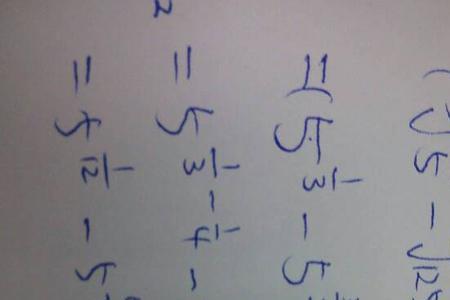 (∛5 - √12
= (5^{1/3} - 5
= 5^{1/3 - 1/4} -
= 5^{1/12} - 5